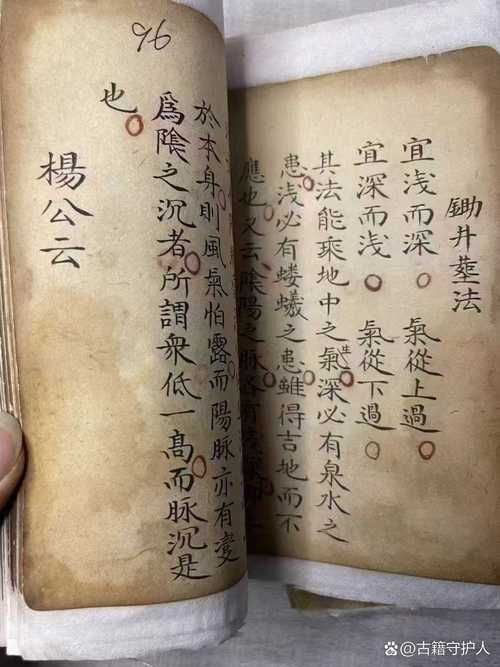 鋤井塟法
宜浅而深 氣從上過
宜深而浅 氣從下過
其法能乘地中之生氣深必有泉水之
患浅必有蝼蟻之患雖得吉地而不
應也又云陰陽之脉各有
96
於本身則風氣怕露而陽脉亦有变
爲陰之沉者所謂衆低一髙而脉沉是
也
楊公云
古籍守护人